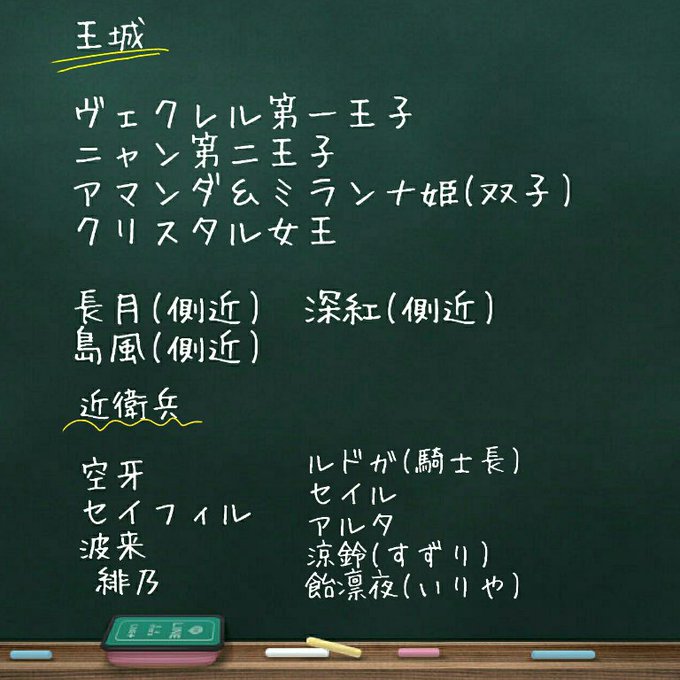 王城
ヴェクレル第一王子
ニャン第二王子
アマンダ&ミランナ姫(双子)
クリスタル女王
長月(側近) 深紅(側近)
島風(側近)
近衛兵
空牙
セイフィル
波来
緋乃
ルドガ(騎士長)
セイル
アルタ
涼鈴(すずり)
飴凛夜(いりや)
LINE